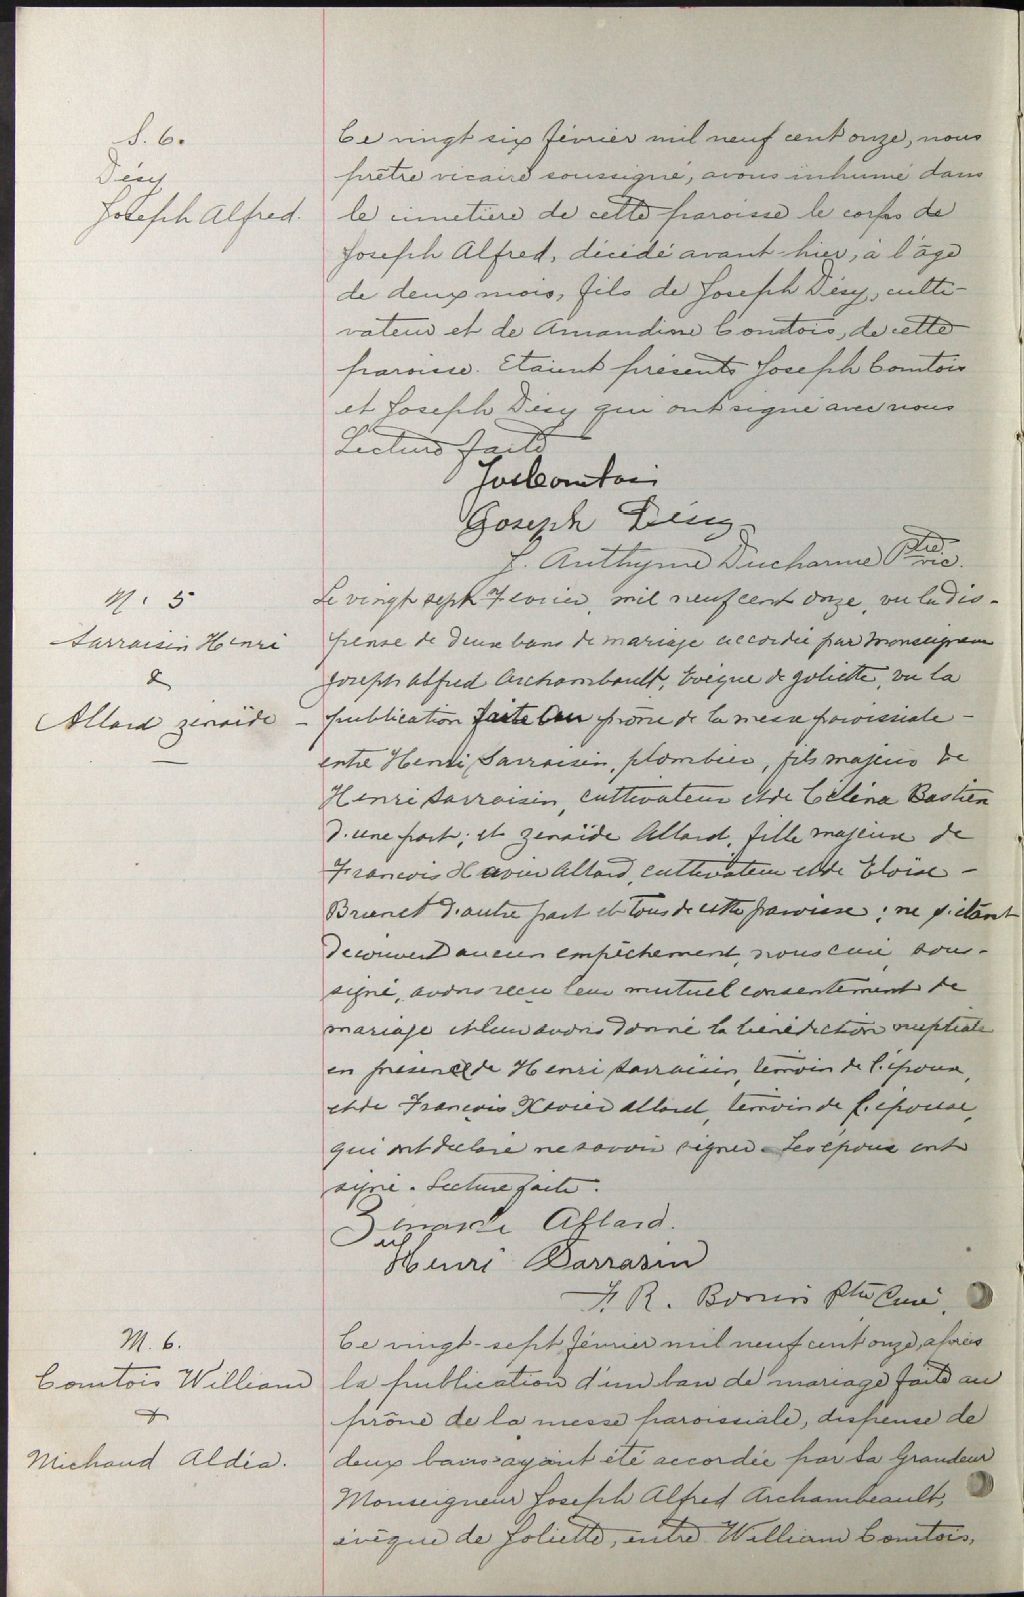 S. 6.
Désy
Joseph Alfred.
Ce vingt six février mil neuf cent onze, nous
prêtre vicaire soussigné, avons inhumé dans
le cimetière de cette paroisse le corps de
Joseph Alfred, décédé avant-hier, à l'âge
de deux mois, fils de Joseph Désy, culti-
vateur et de Amandine Comtois, de cette
paroisse. Etaient présents Joseph Comtois
et Joseph Désy qui ont signé avec nous
Lecture faite
Jos Comtois
Joseph Désy
J. Anthyme Ducharme Ptre vic.
M. 5
Sarraisin Henri
&
Allard Zénaïde
Le vingt sept Fevrier, mil neuf cent onze, vu la dis-
pense de deux bans de mariage accordée par Monseigneur
Joseph Alfred Archambault, Evêque de Joliette, vu la
publication faite au prône de la messe paroissiale -
entre Henri Sarraisin, plombier, fils majeur de
Henri Sarraisin, cultivateur et de Célina Bastien
d'une part; et Zenaïde Allard, fille majeure de
Francois Xavier Allard, cultivateur et de Eloïse -
Brunet d'autre part et tous de cette paroisse; ne s'étant
découvert aucun empêchement, nous curé, sous-
signé, avons reçu leur mutuel consentement de
mariage et leur avons donné la bénédiction nuptiale
en présence de Henri Sarraisin, témoin de l'époux,
et de François Xavier Allard, témoin de l'épouse,
qui ont déclaré ne savoir signer. Les époux ont
signé. Lecture faite.
Zénaïde Allard.
Henri Sarrasin
F. R. Bonin Ptre Curé.
M. 6.
Comtois William
&
Michaud Aldéa.
Ce vingt-sept février mil neuf cent onze, après
la publication d'un ban de mariage faite au
prône de la messe paroissiale, dispense de
deux bans ayant été accordée par Sa Grandeur
Monseigneur Joseph Alfred Archambeault,
évêque de Joliette, entre William Comtois,